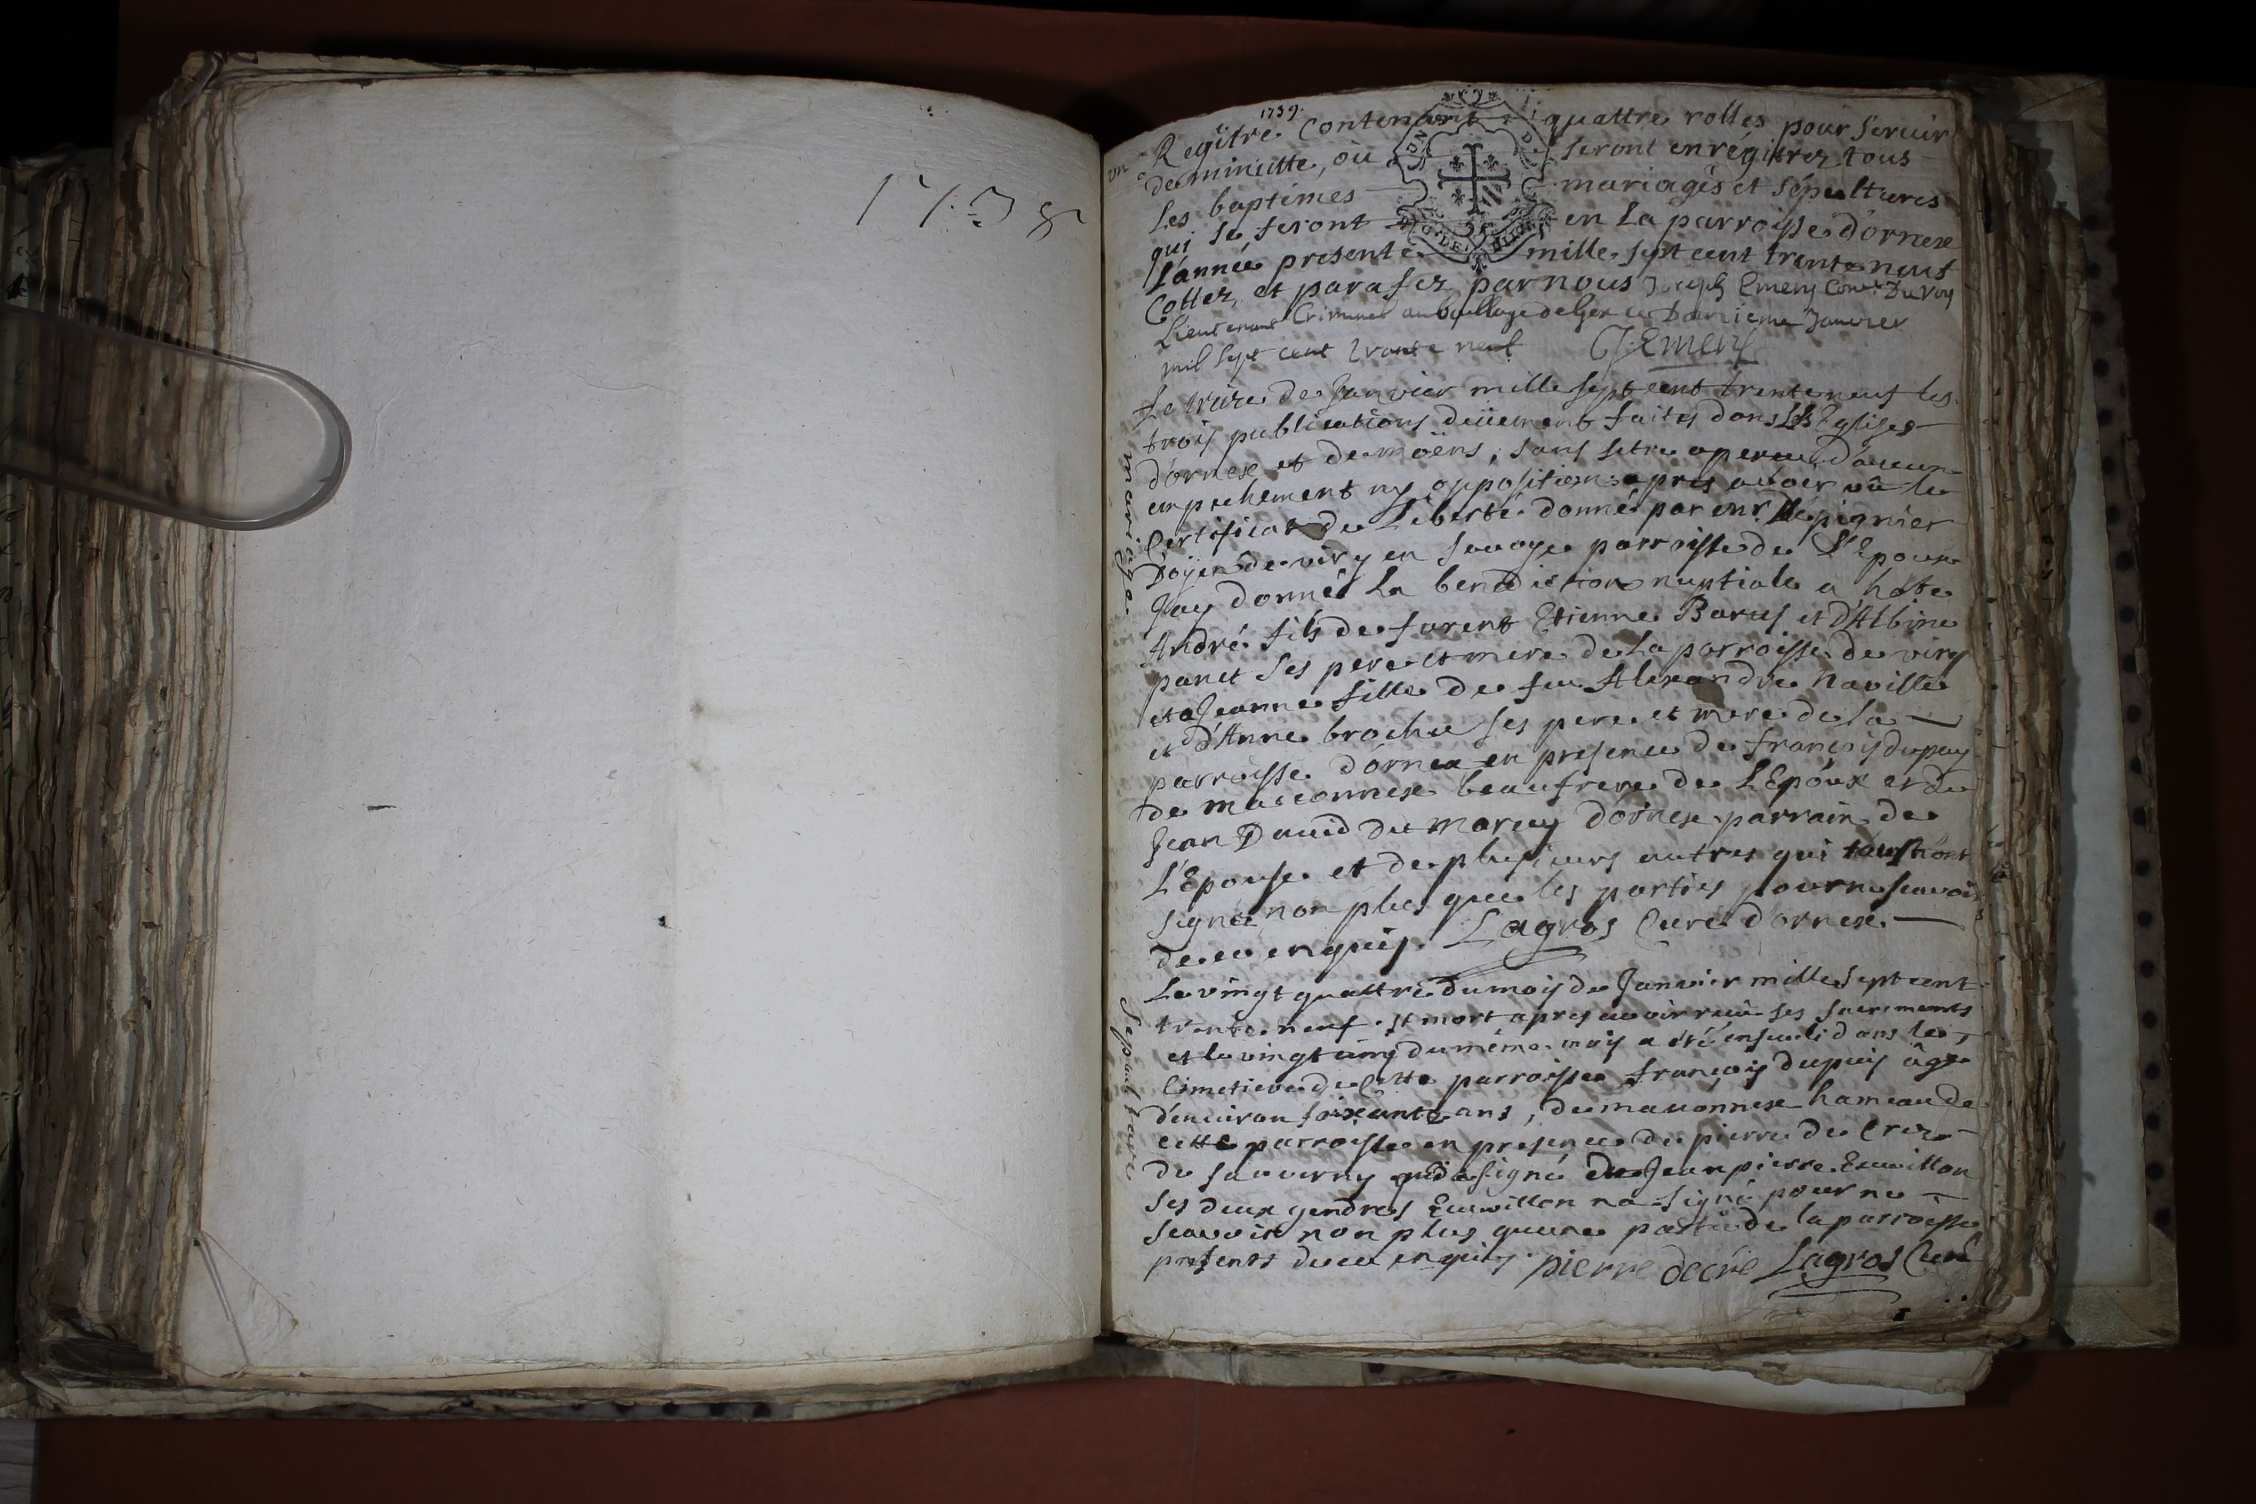 1738
1739.
Regître Contenant quattre rolles pour servir
de minutte, où seront enrégitrez tous
les baptêmes mariages et sépultures
qui se feront en la parroisse d'ornex
l'année presente mille sept cent trente neuf
Cottez et parafez par nous Joseph Emery Coner Du roy
Lieutenant Criminel au bailliage de Gex ce Janvier
mil sept cent trente neuf J: Emery
mariage
Le treize de Janvier mille sept cent trente neuf les
trois publications deüement faites dans les Eglises
d'ornex et de moëns, sans s'etre aperceu d'aucun
empechement ny opposition apres avoir vû le
Certificat de Liberté donné par mr Dépignier
Doyen de viry en savoye parroisse de L'Epoux
J'ay donné la benediction nuptiale a hote
André fils de furent Etienne Barus et d'Albine
panet ses pere et mere de la parroisse de viry
et a Jeanne fille de feu Alexandre naville
et d'Anne brochu ses pere et mere de la
parroisse d'ornex en presence de françois dupuy
de maconnex beaufrere de L'Epoux et de
Jean David du marcey d'ornex parrain de
L'Epouse et de plusieurs autres qui tous n'ont
signé non plus que les parties pour ne scavoir
de ce enquis. Lagros Curé d'ornex.
Sepulture
Le vingt quattre du mois de Janvier mille sept cent
trente neuf est mort apres avoir receu ses sacrements
et le vingt cinq du même mois a été enseveli dans le
Cimetiere de Cette parroisse françois dupuis âgé
d'environ soixante ans, de maconnex hameau de
cette parroisse en presence de pierre de Crez
de sauverny qui a signé de Jean pierre Ecuvillon
ses deux gendres Ecuvillon n'a signé pour ne
scavoir non plus qu'une partie de la parroisse
presents de ce enquis. pierre decré Lagros Curé